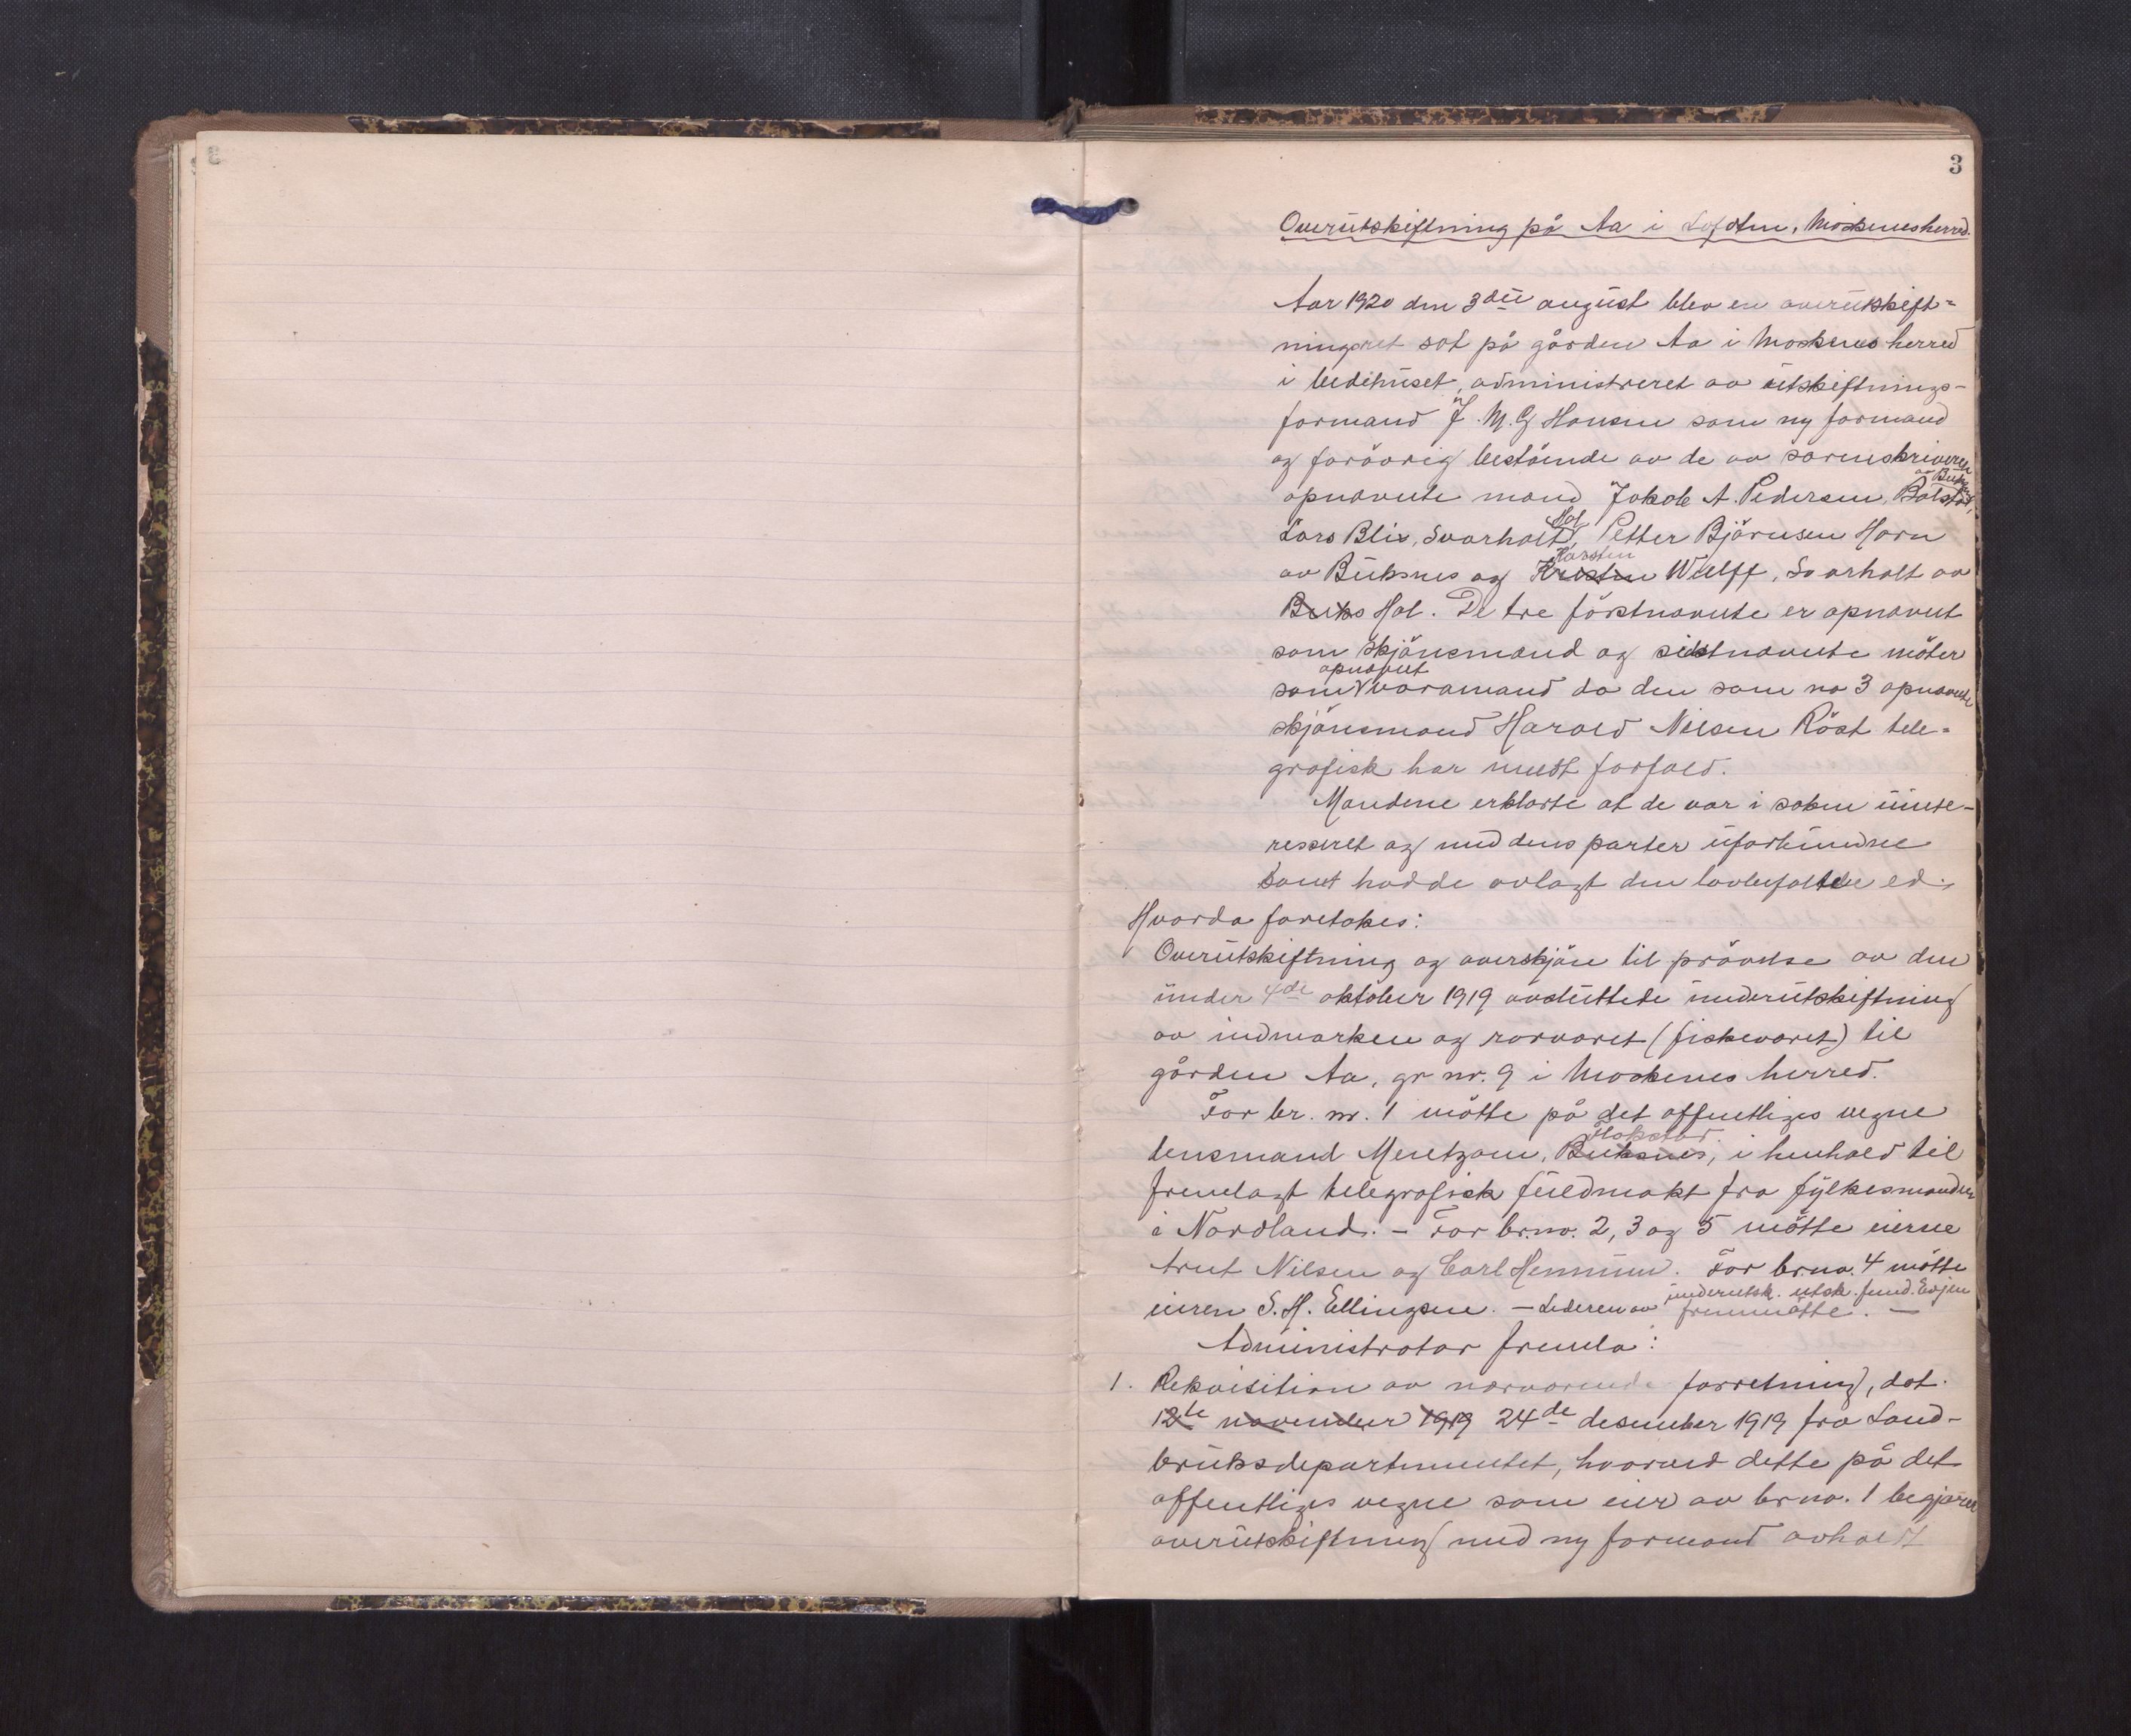 3
Overutskiftning på Aa i Lofoten, Moskenes herred.
Aar 1920 den 3die august blev en overutskift-
ningsret sat på gården Aa i Moskenes herred
i bedehuset, administreret av utskiftnings-
formand J. M. G Hansen som ny formand
og forövrig bestående av de av sorenskriveren
av Buksnes
opnævnte mænd Jakob A. Pedersen, Balstad,
Hol
Lars Blix, Svarholt, Petter Björnsen Horn
Karsten
av Buksnes og Kristen Wulff, Svarholt av
Buks Hol. De tre förstnævnte er opnævnt
som skjönsmænd og sidstnævnte möter
opnævnt
som varamand da den som no 3 opnævnte
skjönsmand Harald Nilsen Röst tele-
grafisk har meldt forfald.
Mændene erklærte at de var i saken uinte-
resseret og med dens parter uforbundne
samt hadde avlagt den lovbefalte ed.
Hvorda foretokes:
Overutskiftning og overskjön til prövelse av den
under 4de oktober 1919 avsluttede underutskiftning
av indmarken og rorværet (fiskeværet) til
gården Aa, gr nr. 9 i Moskenes herred.
For br. nr. 1 mötte på det offentliges vegne
Flakstad.
lensmand Mentzoni, Buksnes, i henhold til
fremlagt telegrafisk fuldmakt fra fylkesmanden
i Nordland. - For br.no. 2, 3 og 5 mötte eierne
Arnt Nilsen og Carl Hemmum. For br.no. 4 mötte
underutsk. utsk. fmd. Evjen
eieren S. H. Ellingsen. - Lederen av fremmötte. -
Administrator fremla:
1. Rekvisition av nærværende forretning, dat.
12te november 1919 24de desember 1919 fra Land-
bruksdepartementet, hvorved dette på det
offentliges vegne som eier av br no. 1 begjærer
overutskiftning med ny formand avholdt